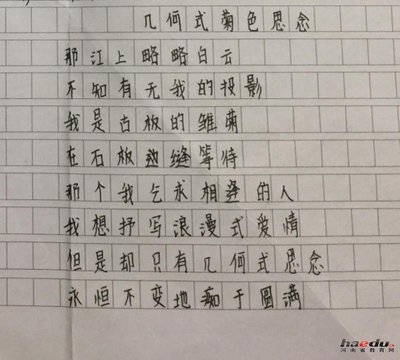 几何式菊色思念
那江上略略白云
不知有无我的投影
我是古板的雏菊
在石板边缝等待
那个我乞求相逢的人
我想抒写浪漫式爱情
但是却只有几何式思念
永恒不变地痴于圆满
haedu.
河南省教育网